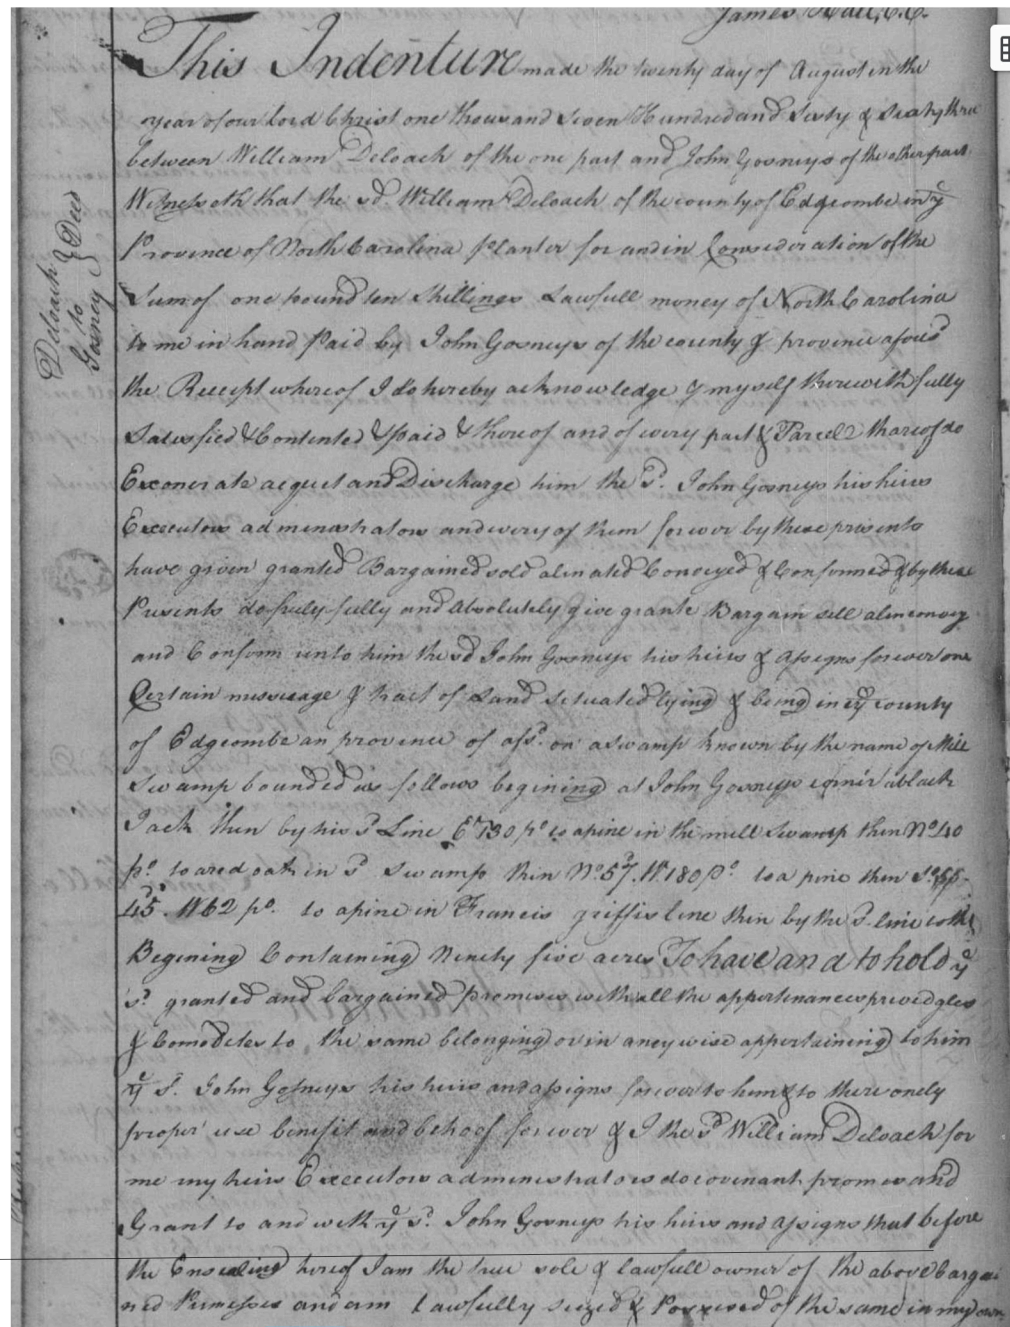 James Hall, C.C.
This Indenture made the twenty day of August in the
year of our Lord Christ one thousand Seven Hundred and Sixty & Sixty three
between William Deloach of the one part and John Gosneys of the other part
Witnesseth that the sd. William Deloach of the county of Edgcombe in ye
Province of North Carolina Planter for and in Consideration of the
Sum of one pound ten Shillings Lawfull money of North Carolina
to me in hand Paid by John Gosneys of the county & province afores'd
the Receipt whereof I do hereby acknowledge & myself therewith fully
Satisfied & Contented & paid & thereof and of every part & Parcell thereof do
Exonerate acquet and Discharge him the Sd. John Gosneys his heirs
Executors admenastrators and every of them forever by these presents
have given granted Bargained sold alinated Conveyed & Confirmed & by these
Presents do freely fully and Absolutely give grante Bargain sell alin convey
and Confirm unto him the sd John Gosneys his heirs & assigns forever one
Certain messuage & tract of Land Situated lying & being in ye county
of Edgcombe an province of afsd. on a Swamp known by the name of Mill
Swamp bounded as follows begining at John Gosneys corner a black
Jack then by his Sd Line E 730 po to a pine in the mill Swamp then No 40
po. to a red oak in sd Swamp then No. 57. W. 180 po. to a pine then So
45. W 62 po. to a pine in Francis griffis line then by the Sd line to the
Begining Containing Ninety five acres To have and to hold ye
sd. granted and bargained promises with all the appertenances previdgles
& Comodetes to the same belonging or in aneywise appertaining to him
ye Sd. John Gosneys his heirs and assigns forever to him & to there onely
proper use benifit and behoof forever & I the Sd William Deloach for
me my heirs Executors admenistrators do covenant promes and
Grant to and with ye sd. John Gosneys his heirs and assigns that before
the Ensealing hereof I am the true sole & lawfull owner of the above bargai
ned Premesses and am Lawfully seized & Possesed of the same in my own
Deloach
to
Gosney
} Deed